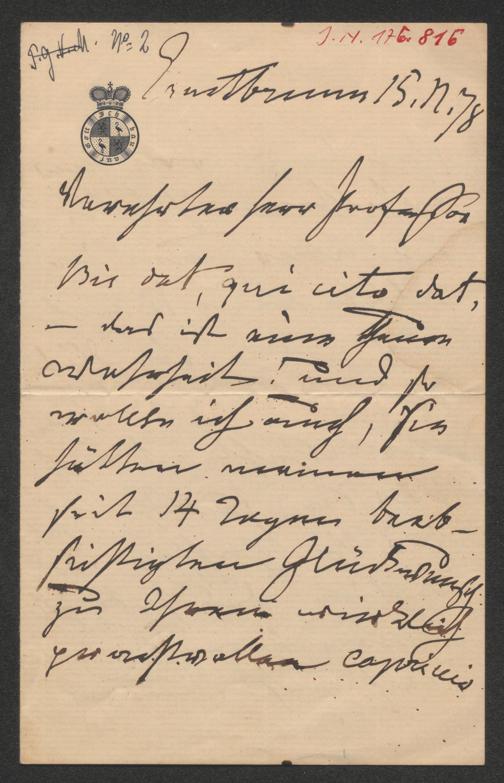 No 2
I. N. 176.816
Ernstbrunn 15. II. 78
Verehrter Herr Professor
Bis dat, qui cito dat,
– das ist eine
Wahrheit! und so
wollte ich auch, Sie
hätten meinen
seit 14 Tagen beab-
sichtigten Glückwunsch
zu Ihrem wirklich
prachtvollen Capriccio